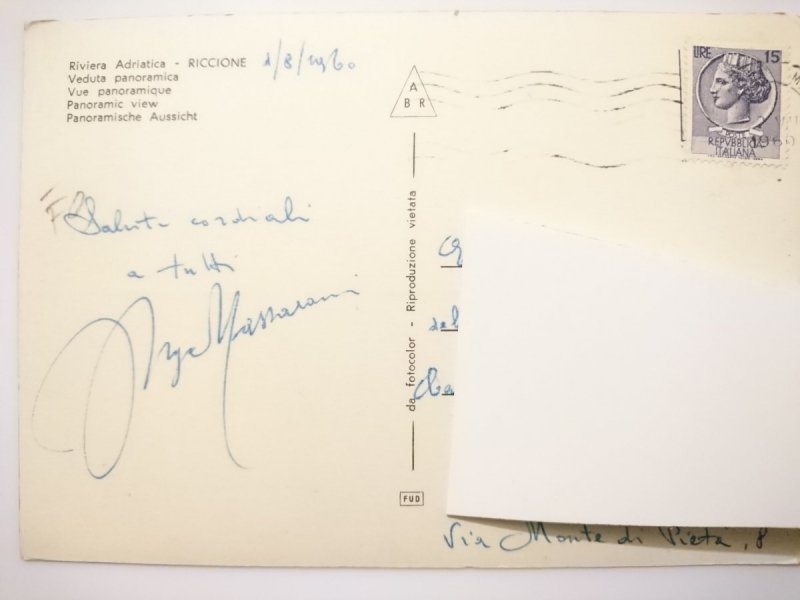 Riviera Adriatica - RICCIONE 1/8/1960
Veduta panoramica
Vue panoramique
Panoramic view
Panoramische Aussicht
Saluti cordiali
a tutti
Massarani
A
B R
da fotocolor - Riproduzione vietata
FUD
LIRE 15
POSTE
REPVBBLICA
ITALIANA
Via Monte di Pietà, 8